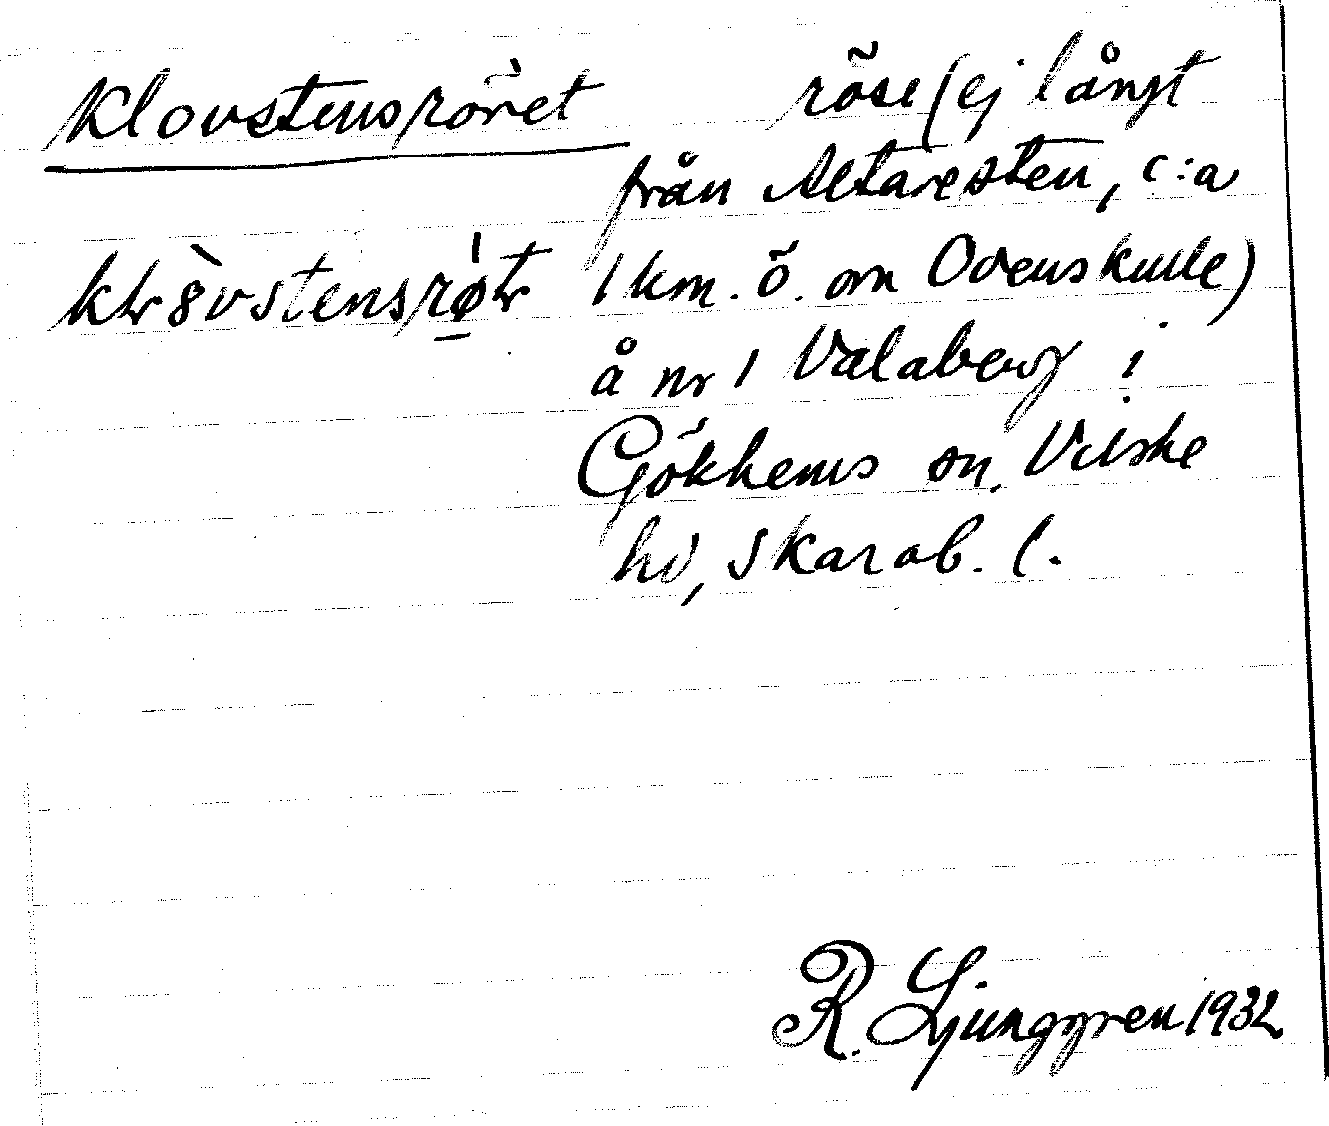 Klovstensröret röse (ej långt
från Altaresten, c:a
1 km. ö. om Odenskulle)
å nr 1 Valaberg i
Gökhems sn, Vilske
hd, Skarab. l.
R. Ljunggren 1932